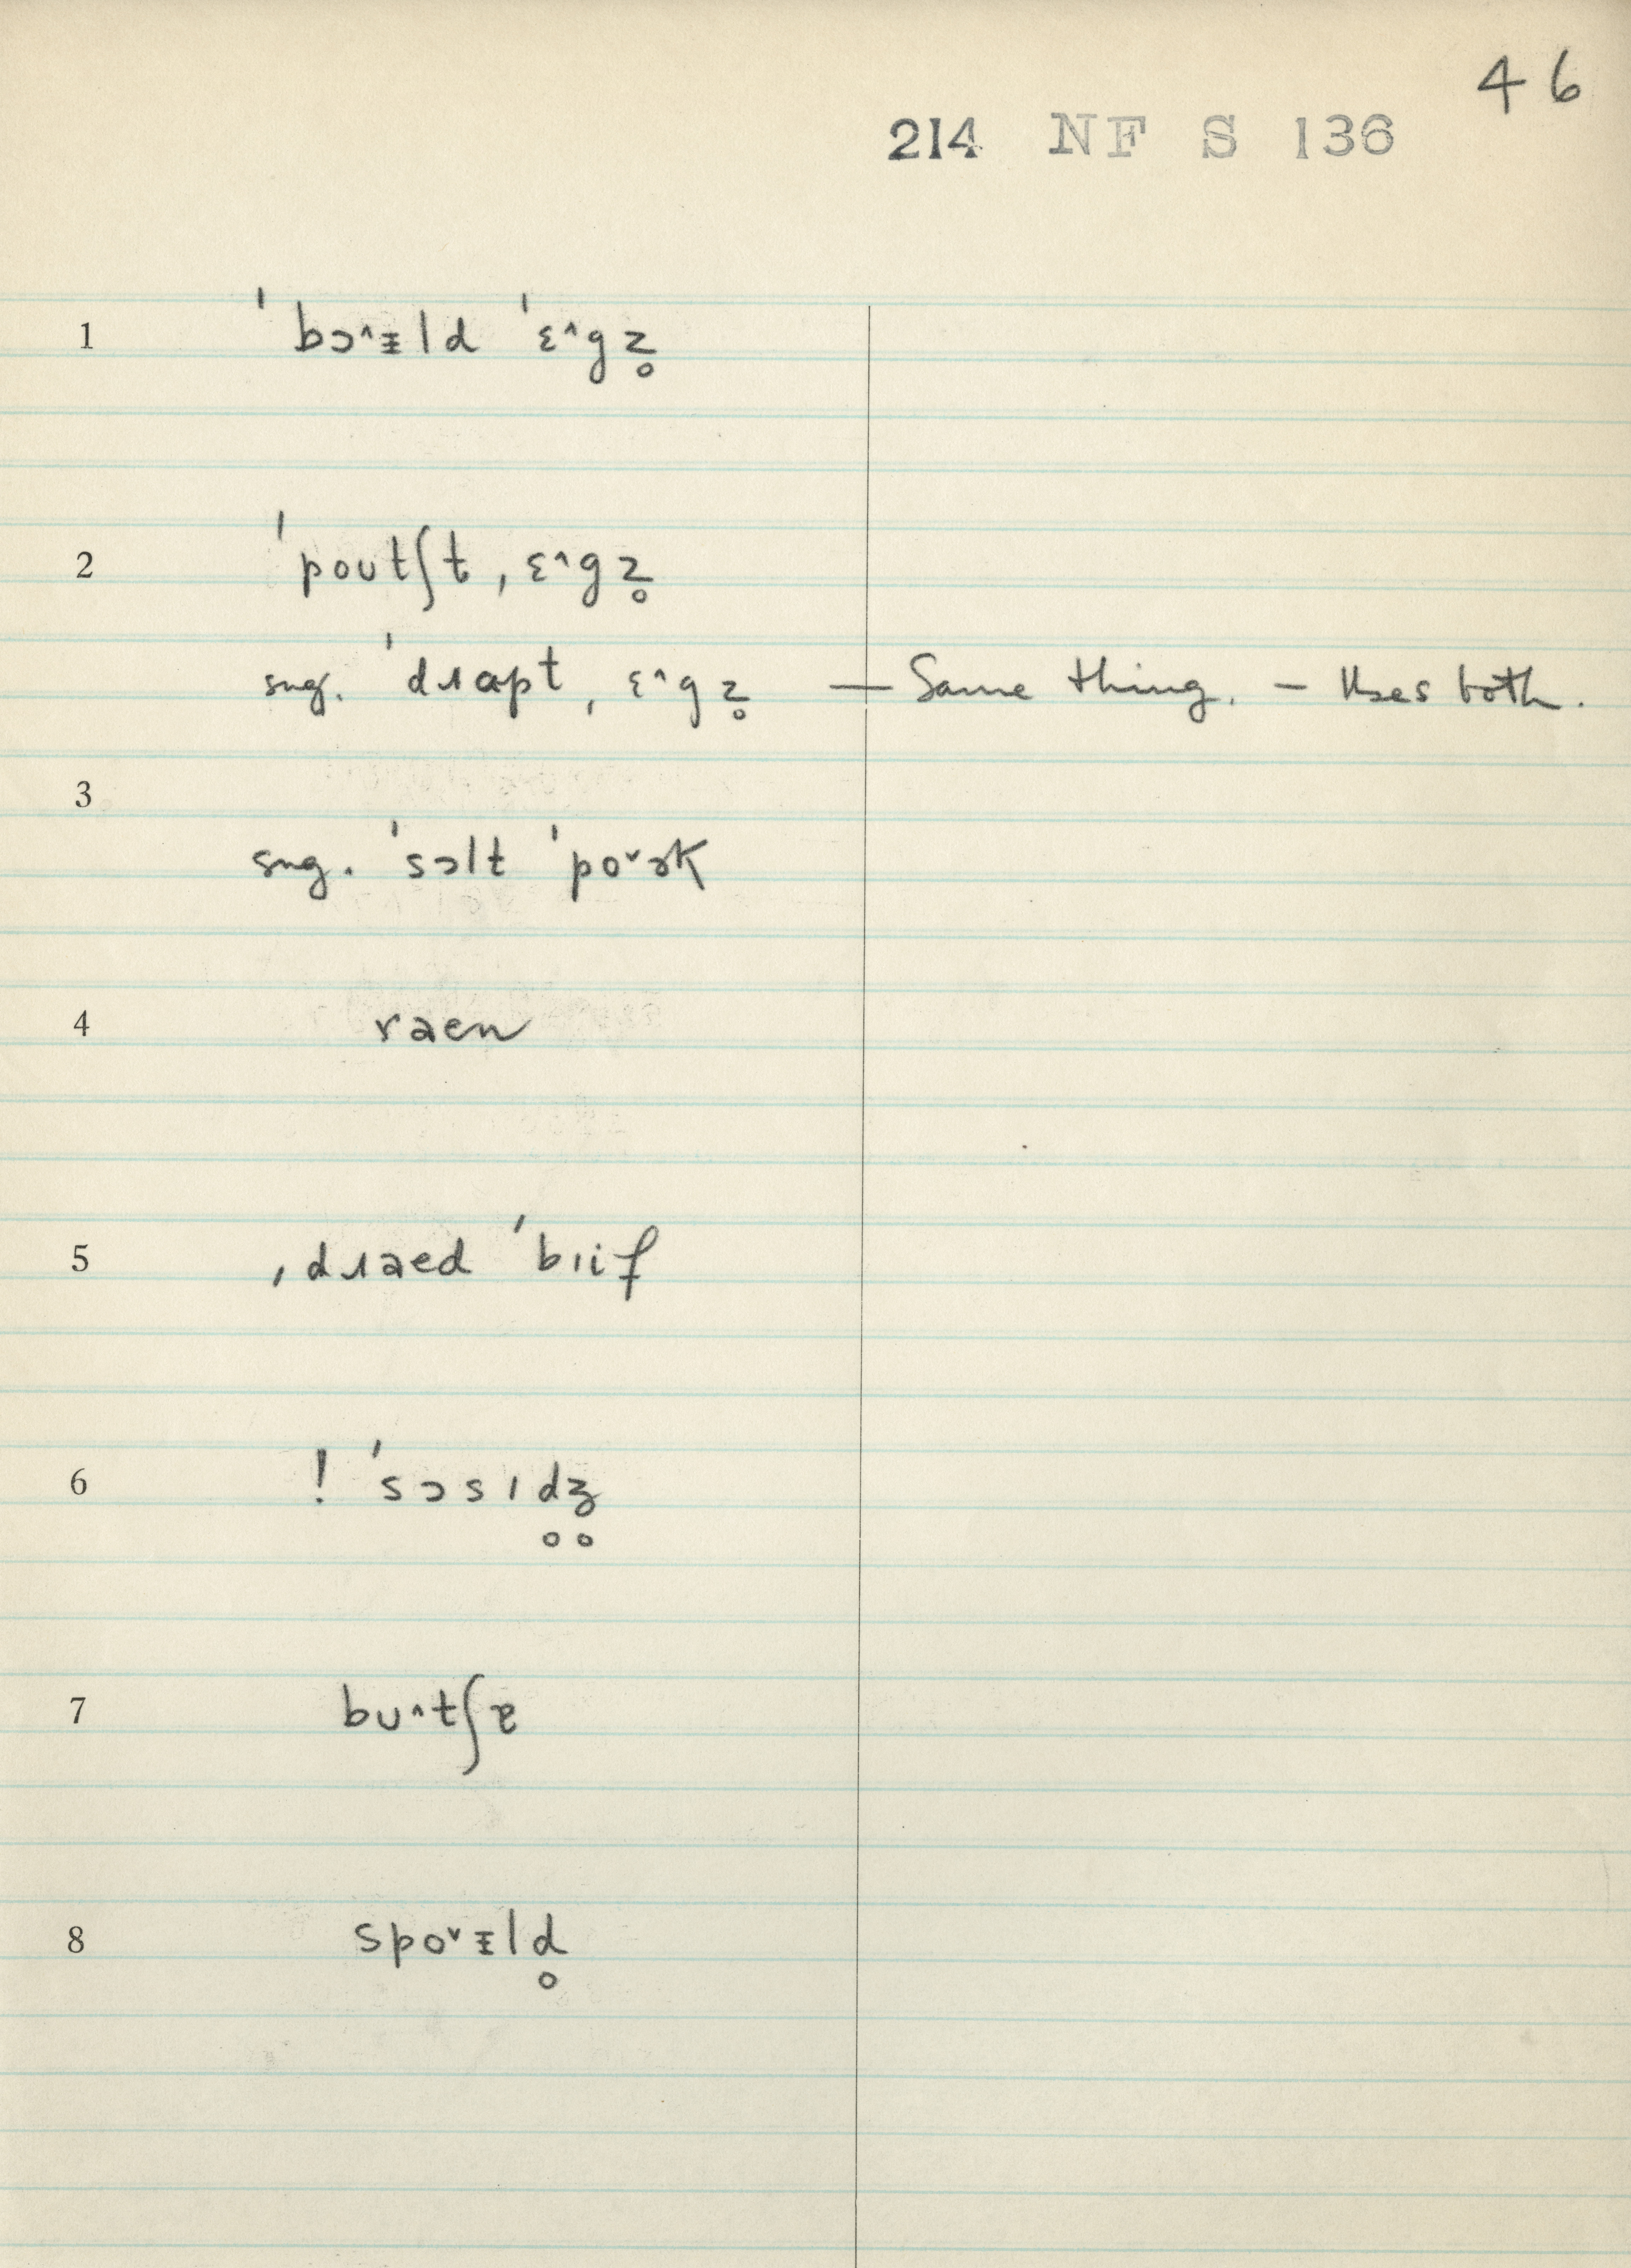 46
214 NF S 136
1 ˈbɔ˄ᵻld ˈɛ˄gz̥
2 ˈpoutʃt ˌɛ˄gz̥
sug. ˈdɹɑpt ˌɛ˄gz̥ — Same thing. — Uses both.
3
sug. ˈsɔlt ˈpo˅ɚk
4 raen
5 ˌdɹaed ˈbɪif
6 ! ˈsɔsɪd̥ʒ̥
7 bu˄tʃɐ
8 spo˅ᵻld̥